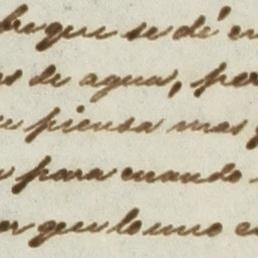 que se dé en
de agua, per
piensa mas
para cuando
que lo uno e